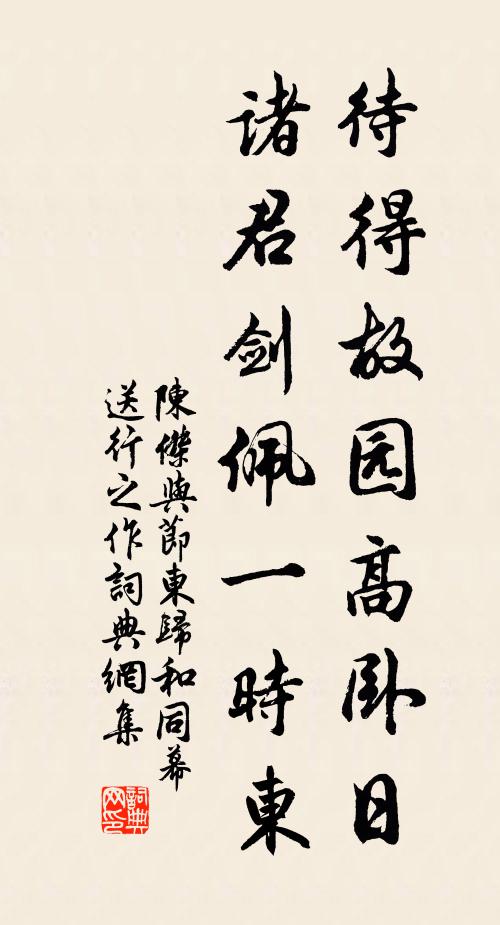 待得故园高卧日
諸君劍佩一時東
陳傑與節東歸和同幕
送行之作詞典網集
詞典
网印